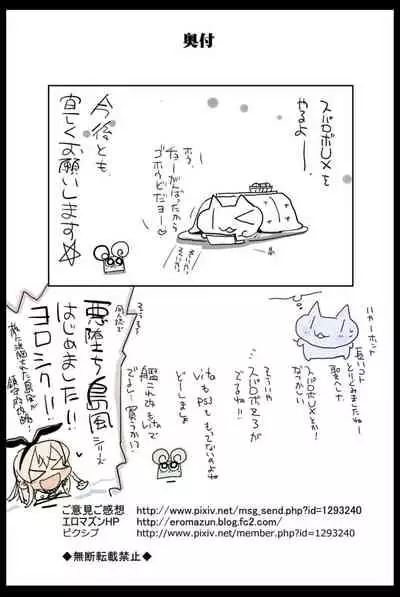 奥付
スパロボUXを
やるよー、
ホラ、
チョーがんばったから
ゴホウビだヨー♡
今後とも
宜しくお願いします☆
いやーホント
長いコト
スパロボUXとか!
なつかしい
そういや
スパロボZ3が
でるね!!
VitaもPS3ももってないのよね
どーしましょ
艦これ改もVitaで
でるし…買うか!?
悪堕ち島風シリーズ
はじめました!!
ヨロシク!!
ご意見ご感想 http://www.pixiv.net/msg_send.php?id=1293240
エロマズンHP http://eromazun.blog.fc2.com/
ピクシブ http://www.pixiv.net/member.php?id=1293240
◆無断転載禁止◆